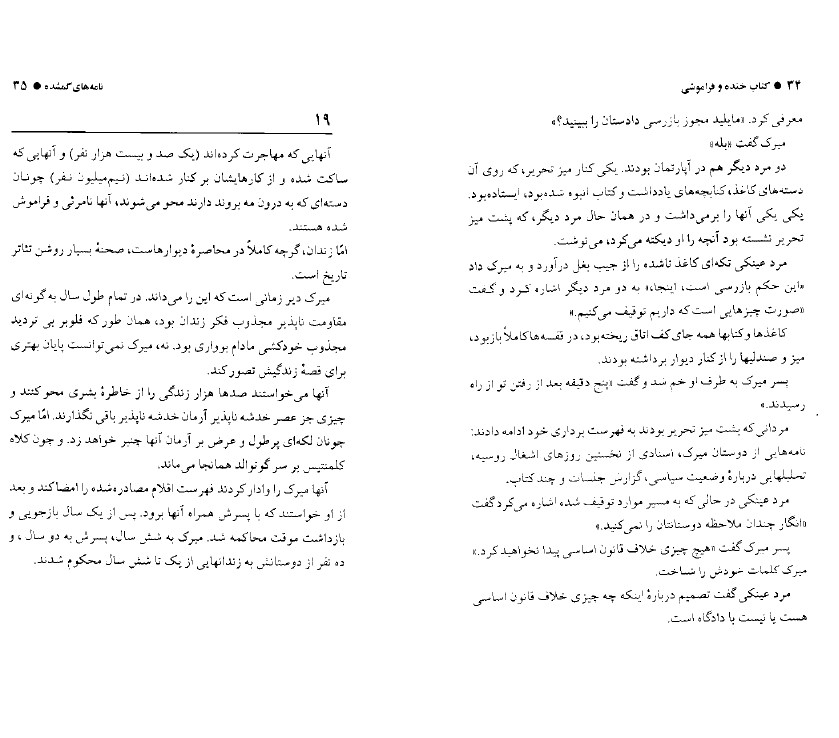 ۳۴ ● کتاب خنده و فراموشی
معرفی کرد. «مایلید مجوز بازرسی دادستان را ببینید؟»
میرک گفت «بله»
دو مرد دیگر هم در آپارتمان بودند. یکی کنار میز تحریر، که روی آن
دسته‌های کاغذ، کتابچه‌های یادداشت و کتاب انبوه شده‌بود، ایستاده‌بود.
یکی یکی آنها را برمی‌داشت و در همان حال مرد دیگر، که پشت میز
تحریر نشسته بود آنچه را او دیکته می‌کرد، می‌نوشت.
مرد عینکی تکه‌ای کاغذ تاشده را از جیب بغل درآورد و به میرک داد
«این حکم بازرسی است، اینجا،» به دو مرد دیگر اشاره کرد و گفت
«صورت چیزهایی است که داریم توقیف می‌کنیم.»
کاغذها و کتابها همه جای کف اتاق ریخته‌بود، در قفسه‌ها کاملاً باز بود،
میز و صندلیها را از کنار دیوار برداشته بودند.
پسر میرک به طرف او خم شد و گفت «پنج دقیقه بعد از رفتن تو از راه
رسیدند.»
مردانی‌که پشت میز تحریر بودند به فهرست برداری خود ادامه دادند:
نامه‌هایی از دوستان میرک، اسنادی از نخستین روزهای اشغال روسیه،
تحلیلهایی دربارهٔ وضعیت سیاسی، گزارش جلسات و چند کتاب.
مرد عینکی در حالی که به مسیر موارد توقیف شده اشاره می‌کرد گفت
«انگار چندان ملاحظه دوستانتان را نمی‌کنید.»
پسر میرک گفت «هیچ چیزی خلاف قانون اساسی پیدا نخواهید کرد.»
میرک کلمات خودش را شناخت.
مرد عینکی گفت تصمیم دربارهٔ اینکه چه چیزی خلاف قانون اساسی
هست یا نیست با دادگاه است.
نامه‌های گمشده ● ۳۵
۱۹
آنهایی که مهاجرت کرده‌اند (یک صد و بیست هزار نفر) و آنهایی که
ساکت شده و از کارهایشان بر کنار شده‌اند (نیم‌میلیون نفر) چونان
دسته‌ای که به درون مه بروند دارند محو می‌شوند، آنها نامرئی و فراموش
شده هستند.
امّا زندان، گرچه کاملاً در محاصرهٔ دیوارهاست، صحنهٔ بسیار روشن تئاتر
تاریخ است.
میرک دیر زمانی است که این را می‌داند. در تمام طول سال به گونه‌ای
مقاومت ناپذیر مجذوب فکر زندان بود، همان طور که فلوبر بی تردید
مجذوب خودکشی مادام بوواری بود. نه، میرک نمی‌توانست پایان بهتری
برای قصهٔ زندگیش تصور کند.
آنها می‌خواستند صدها هزار زندگی را از خاطرهٔ بشری محو کنند و
چیزی جز عصر خدشه ناپذیر آرمان خدشه ناپذیر باقی نگذارند. امّا میرک
چونان لکه‌ای پرطول و عرض بر آرمان آنها چنبر خواهد زد. و چون کلاه
کلمنتیس بر سر گوتوالد همانجا می‌ماند.
آنها میرک را وادار کردند فهرست اقلام مصادره‌شده را امضا کند و بعد
از او خواستند که با پسرش همراه آنها برود. پس از یک سال بازجویی و
بازداشت موقت محاکمه شد. میرک به شش سال، پسرش به دو سال ، و
ده نفر از دوستانش به زندانهایی از یک تا شش سال محکوم شدند.